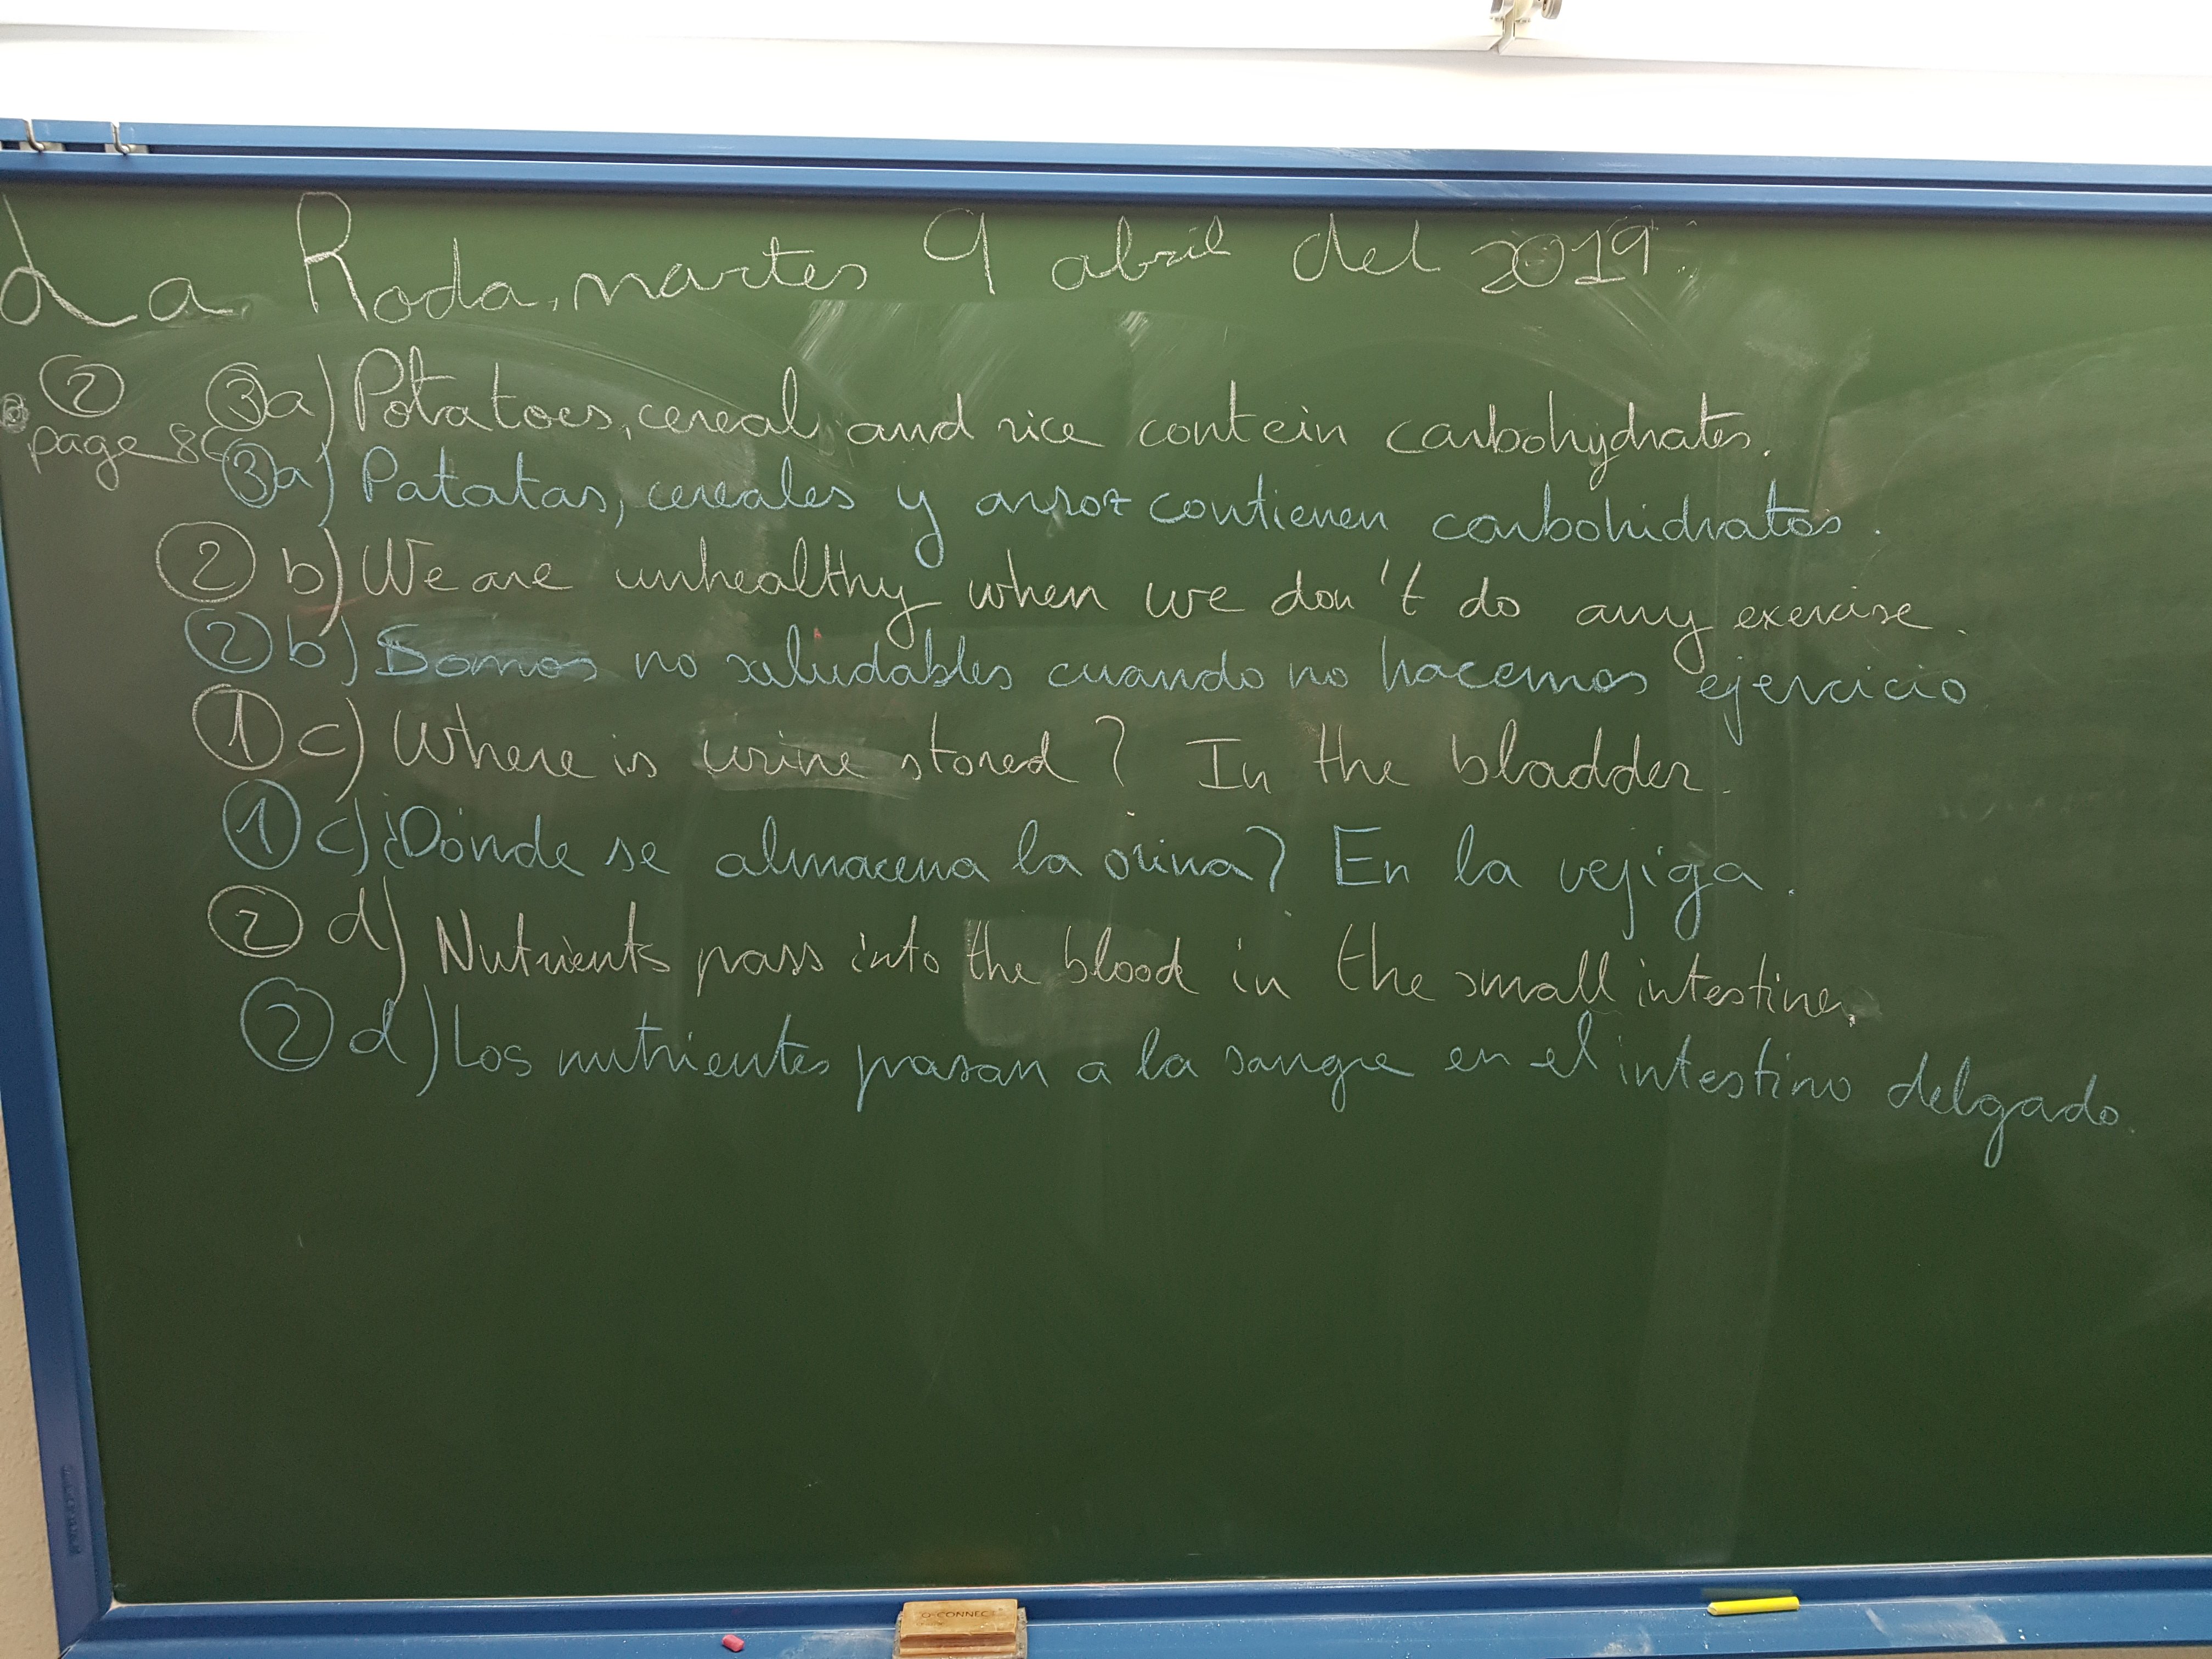 La Roda, martes 9 abril del 2019.
② ③a) Potatoes, cereal and rice contein carbohydrates.
page 86
③a) Patatas, cereales y arroz contienen carbohidratos.
② b) We are unhealthy when we don't do any exercise.
② b) Somos no saludables cuando no hacemos ejercicio
① c) Where is urine stored? In the bladder.
① c) ¿Dónde se almacena la orina? En la vejiga.
② d) Nutrients pass into the blood in the small intestine.
② d) Los nutrientes pasan a la sangre en el intestino delgado.
Q-CONNECT